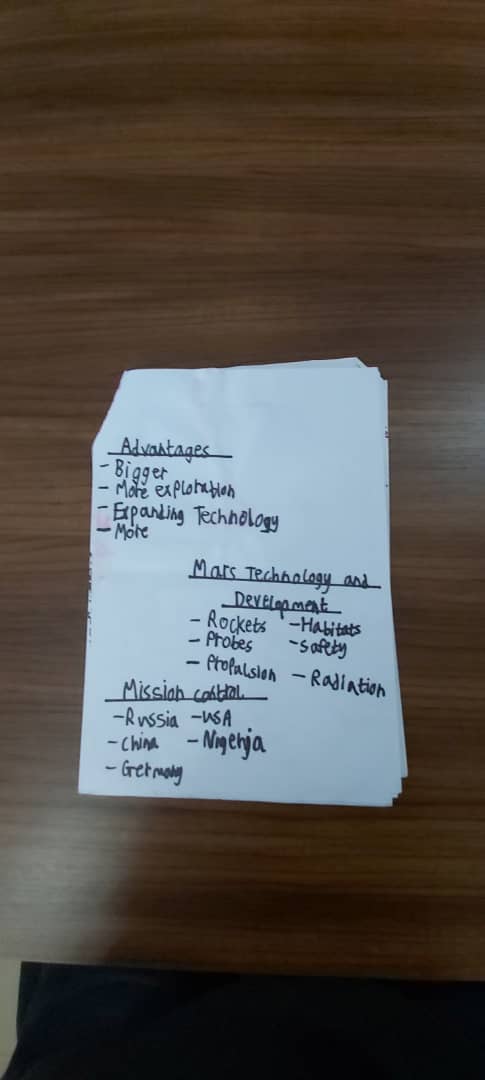 Advantages
- Bigger
- More exploration
- Expanding Technology
- More
Mars Technology and
Development
- Rockets - Habitats
- Probes - Safety
- Propulsion - Radiation
Mission control
- Russia - USA
- China - Nigeria
- Germany